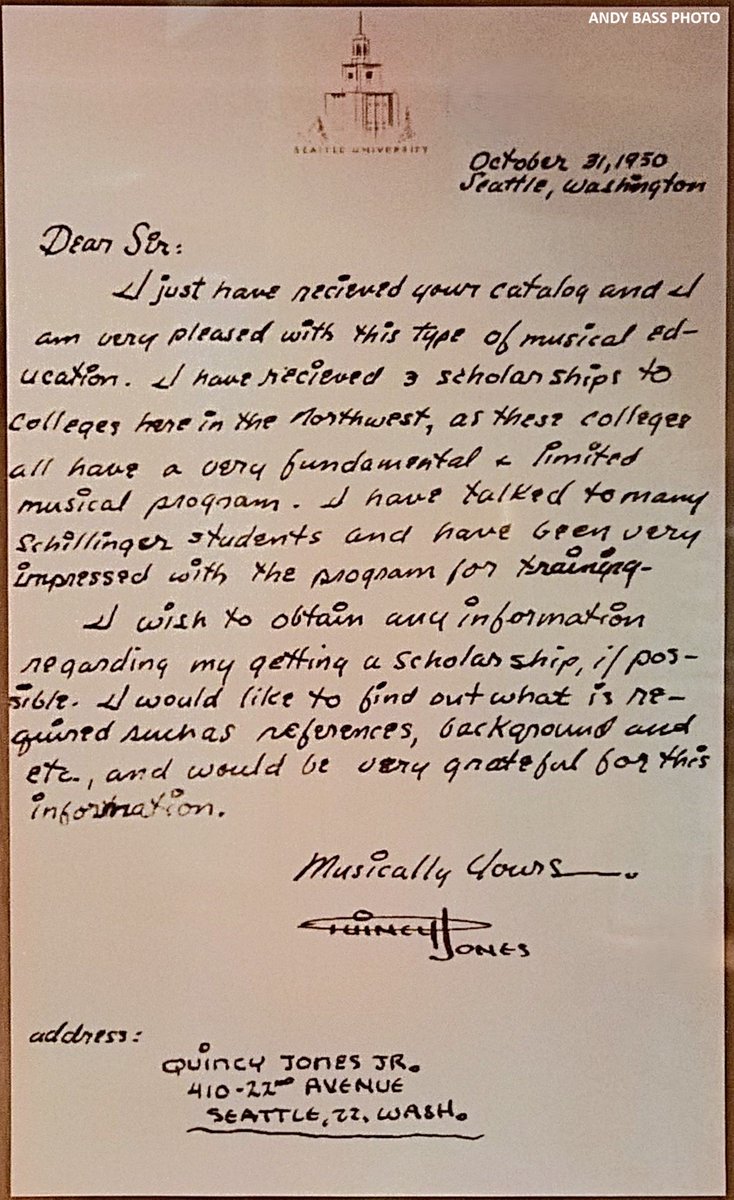 ANDY BASS PHOTO
SEATTLE UNIVERSITY
October 31, 1950
Seattle, Washington
Dear Sir:
I just have recieved your catalog and I
am very pleased with this type of musical ed-
ucation. I have recieved 3 scholarships to
colleges here in the Northwest, as these colleges
all have a very fundamental & limited
musical program. I have talked to many
Schillinger students and have been very
impressed with the program for training.
I wish to obtain any information
regarding my getting a scholarship, if pos-
sible. I would like to find out what is re-
quired such as references, background and
etc., and would be very grateful for this
information.
Musically Yours
Quincy Jones
address:
QUINCY JONES JR.
410-22nd AVENUE
SEATTLE, 22, WASH.